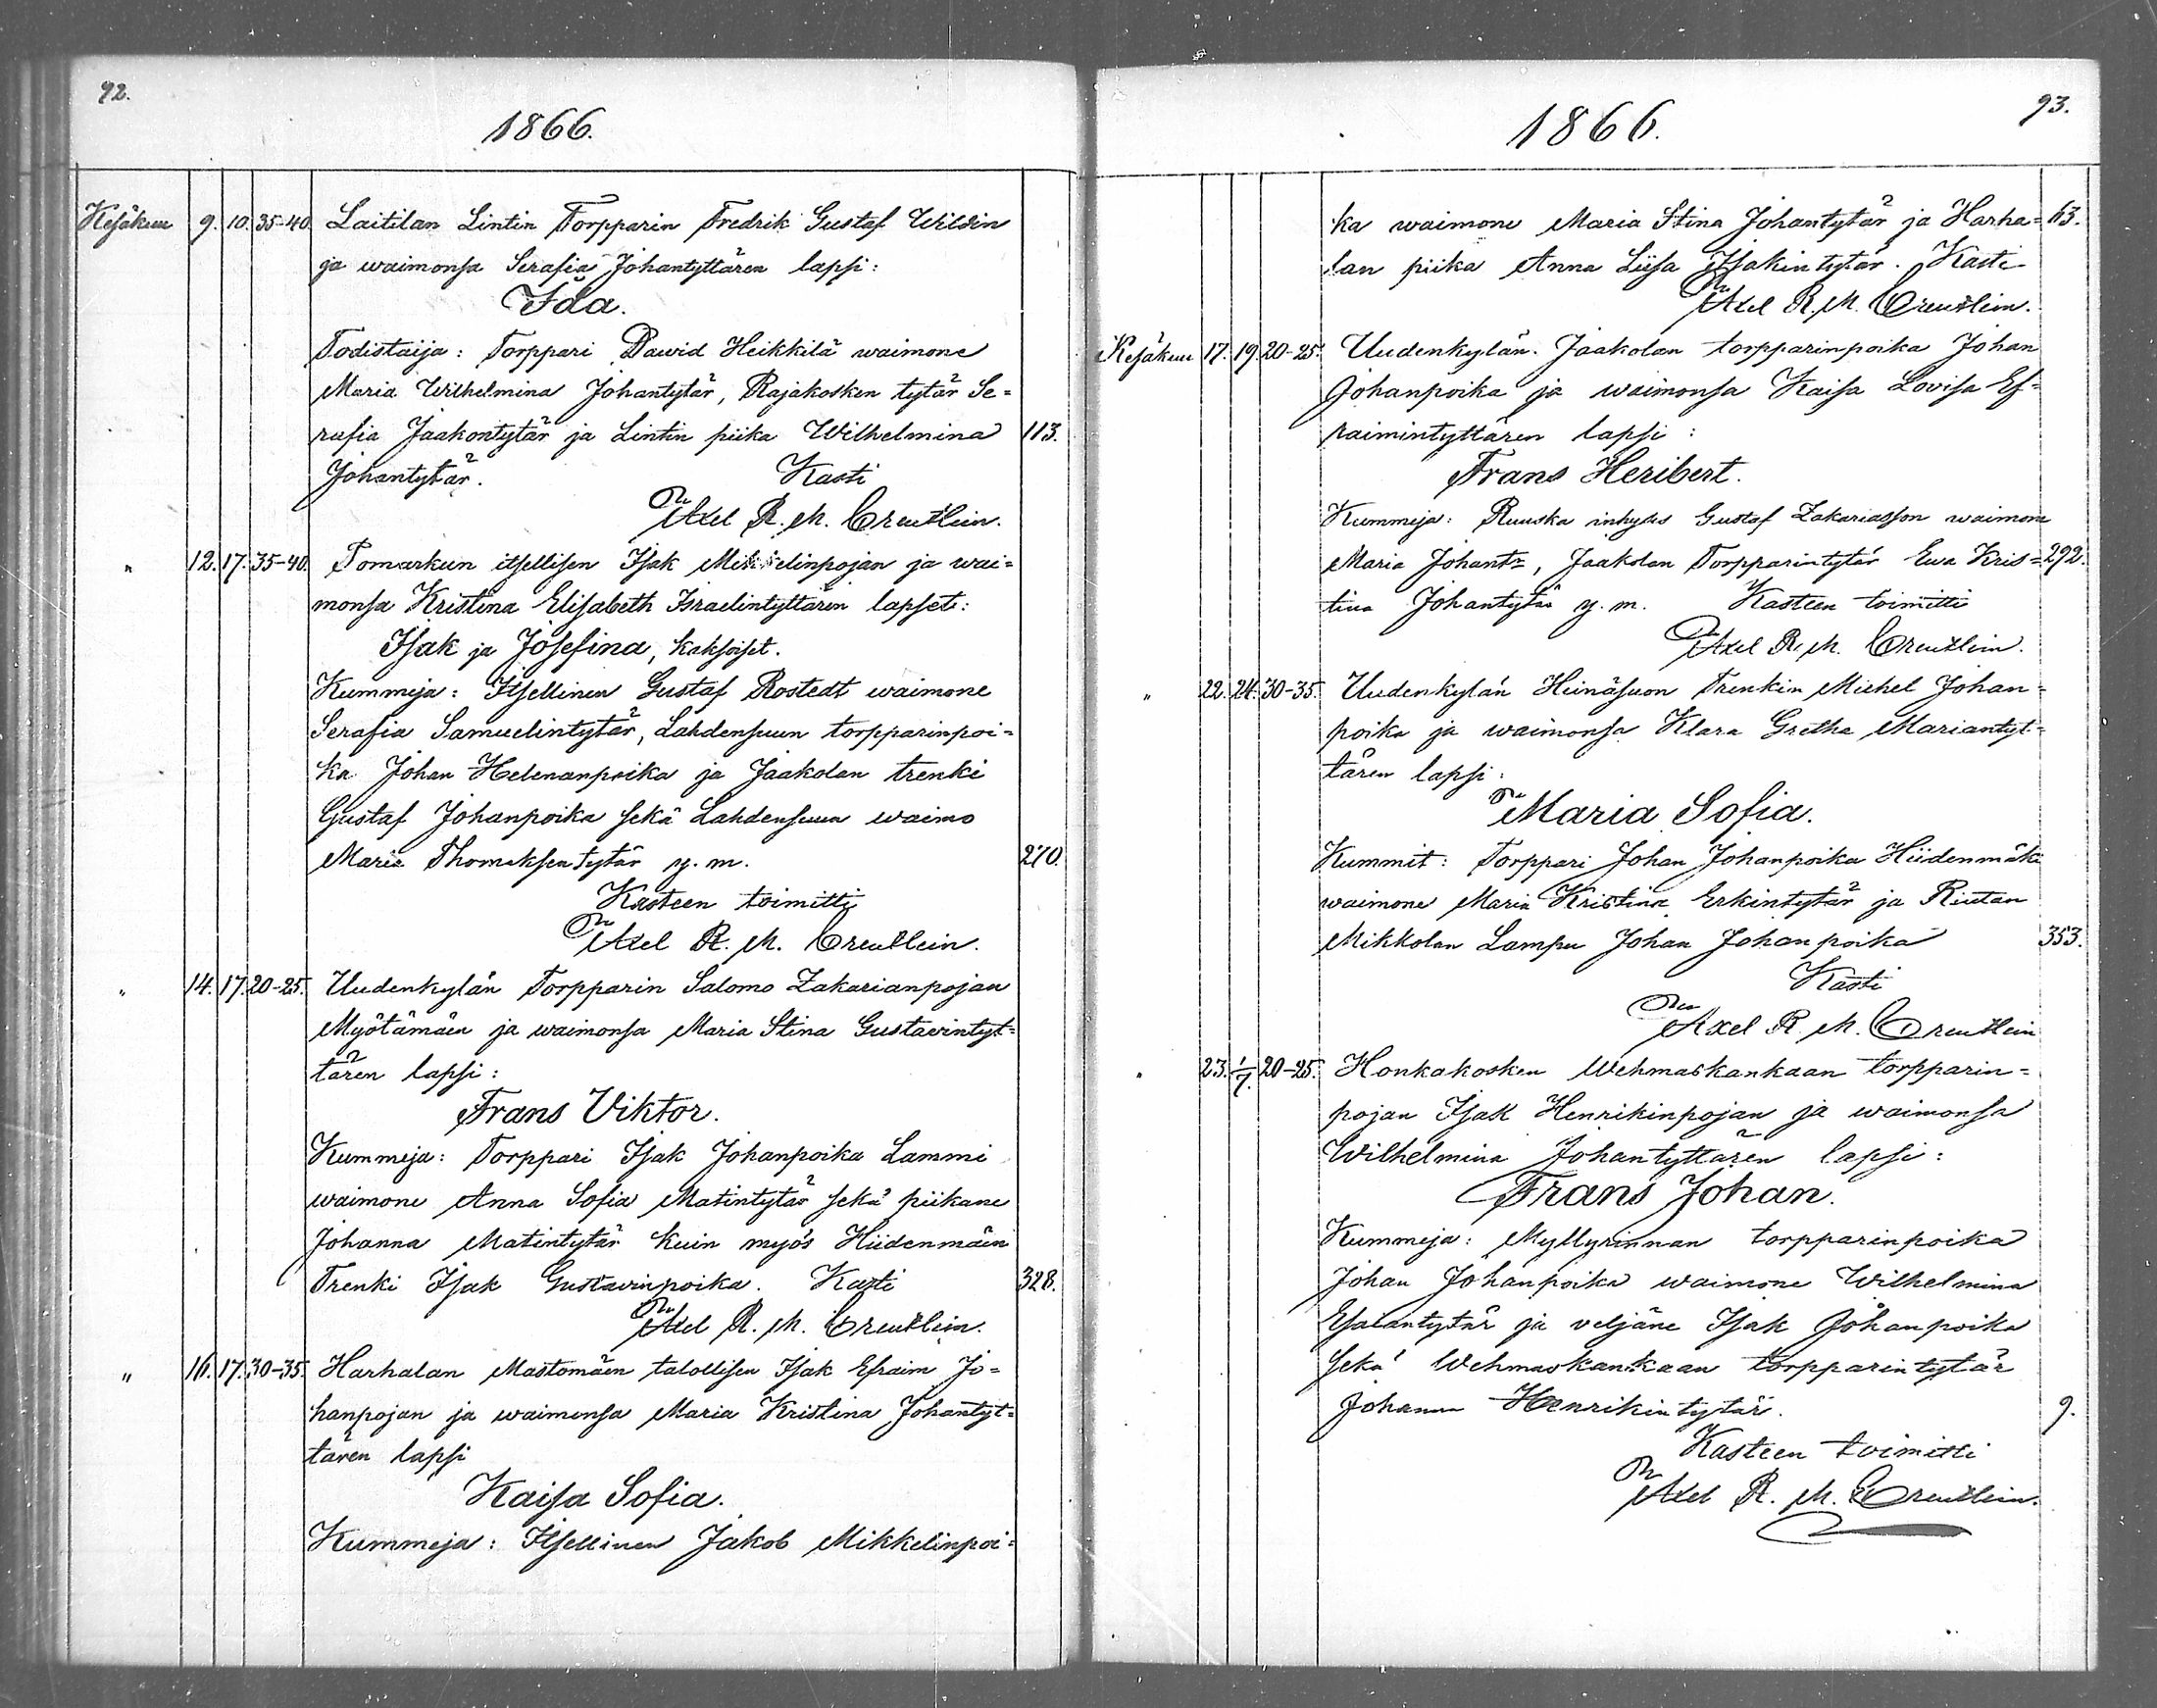 92.
1866.
Kesäkuu 9. 10. 35-40. Laitilan Lintin Torpparin Fredrik Gustaf Wildin
ja waimonsa Serafia Johantyttären lapsi:
Ida.
Todistaija: Torppari Dawid Heikkilä waimone
Maria Wilhelmina Johantytär, Rajakosken tytär Se=
rafia Jaakontytär ja Lintin piika Wilhelmina 113.
Johantytär. Kasti
Axel R. M. Creutlein.
" 12. 17. 35-40. Pomarkun itsellisen Isak Mikkelinpojan ja wai=
monsa Kristina Elisabeth Israelintyttären lapset:
Isak ja Josefina, kaksoiset.
Kummeja: Itsellinen Gustaf Rostedt waimone
Serafia Samuelintytär, Lahdensuun torpparinpoi=
ka Johan Helenanpoika ja Jaakolan trenki
Gustaf Johanpoika sekä Lahdensuun waimo
Maria Thomaksentytär y. m. 270.
Kasteen toimitti
Axel R. M. Creutlein.
" 14. 17. 20-25. Uudenkylän Torpparin Salomo Zakarianpojan
Myötämäen ja waimonsa Maria Stina Gustavintyt=
tären lapsi:
Frans Viktor.
Kummeja: Torppari Isak Johanpoika Lammi
waimone Anna Sofia Matintytär sekä piikane
Johanna Matintytär kuin myös Hiidenmäen
Trenki Isak Gustavinpoika. Kasti 328.
Axel R. M. Creutlein.
" 16. 17. 30-35. Harhalan Mastomäen talollisen Isak Efraim Jo=
hanpojan ja waimonsa Maria Kristina Johantyt=
tären lapsi
Kaisa Sofia.
Kummeja: Itsellinen Jakob Mikkelinpoi=
93.
1866.
ka waimone Maria Stina Johantytär ja Harha= 63.
lan piika Anna Liisa Isakintytär. Kasti
Axel R. M. Creutlein.
Kesäkuu 17. 19. 20-25. Uudenkylän Jaakolan torpparinpoika Johan
Johanpoika ja waimonsa Kaisa Lovisa Ef=
raimintyttären lapsi:
Frans Heribert.
Kummeja: Ruuska inhyses Gustaf Zakariasson waimone
Maria Johantr, Jaakolan Torpparintytär Ewa Kris= 292.
tina Johantytär y. m. Kasteen toimitti
Axel R. M. Creutlein.
" 22. 24. 30-35. Uudenkylän Heinäsuon Trenkin Michel Johan=
poika ja waimonsa Klara Gretha Mariantyt=
tären lapsi:
Maria Sofia.
Kummit: Torppari Johan Johanpoika Hiidenmäki
waimone Maria Kristina Erkintytär ja Riutan
Mikkolan Lampu Johan Johanpoika 353.
Kasti
Axel R. M. Creutlein
" 23. 1/7. 20-25. Honkakosken Wehmaskankaan torpparin=
pojan Isak Henrikinpojan ja waimonsa
Wilhelmina Johantyttären lapsi:
Frans Johan.
Kummeja: Myllyrinnan torpparinpoika
Johan Johanpoika waimone Wilhelmina
Esaiantytär ja veljäne Isak Johanpoika
sekä Wehmaskankaan torpparintytär
Johanna Henrikintytär. 9.
Kasteen toimitti
Axel R. M. Creutlein.